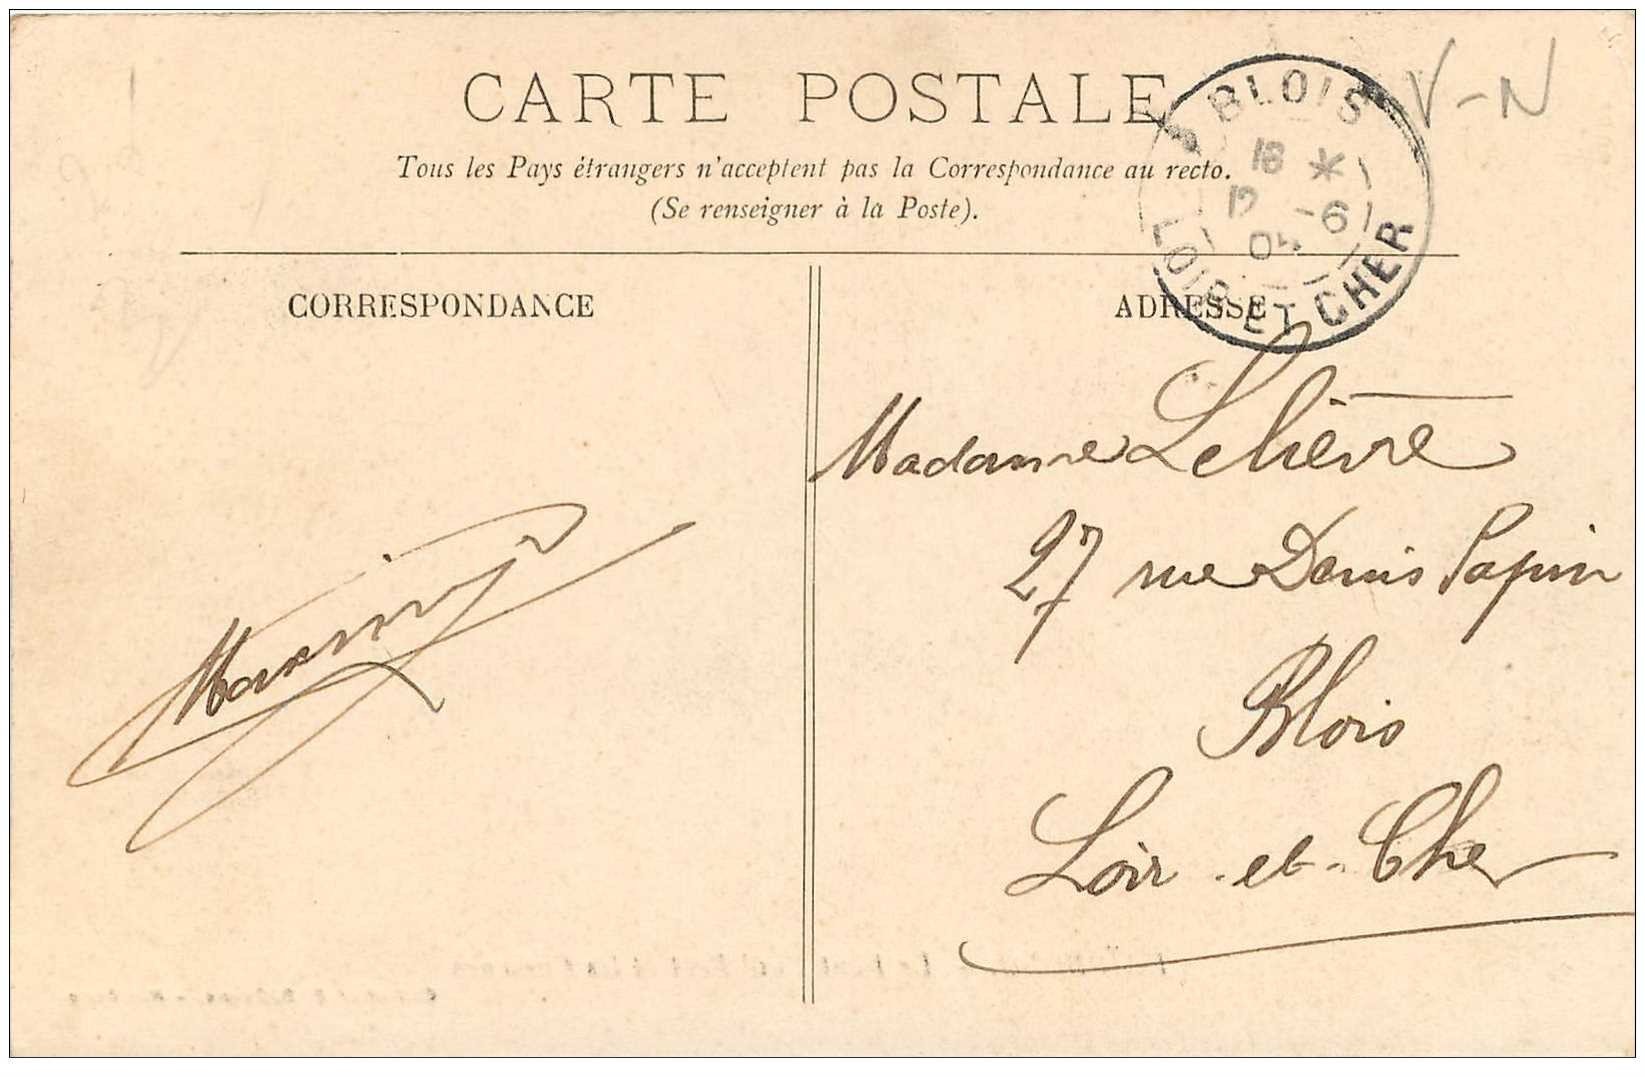 CARTE POSTALE
Tous les Pays étrangers n'acceptent pas la Correspondance au recto.
(Se renseigner à la Poste).
V-N
BLOIS
18 *
12 -6
04
LOIR ET CHER
CORRESPONDANCE
ADRESSE
Madame Lelièvre
27 rue Denis Papin
Blois
Loir-et-Cher